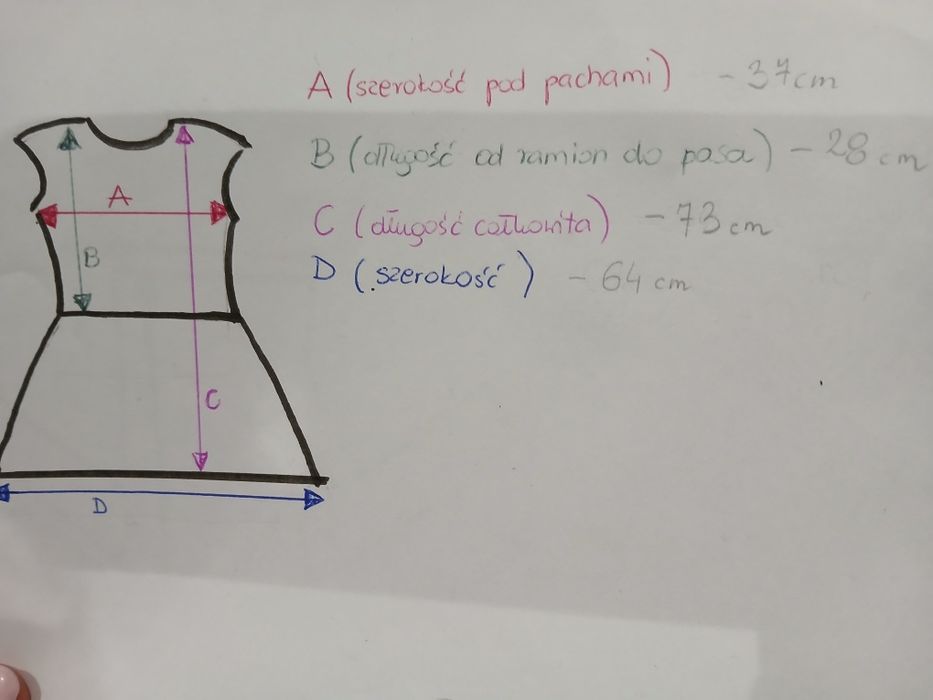 A (szerokość pod pachami) - 37cm
B (długość od ramion do pasa) - 28 cm
C (długość całkowita) - 73 cm
D (szerokość) - 64 cm
A
B
C
D